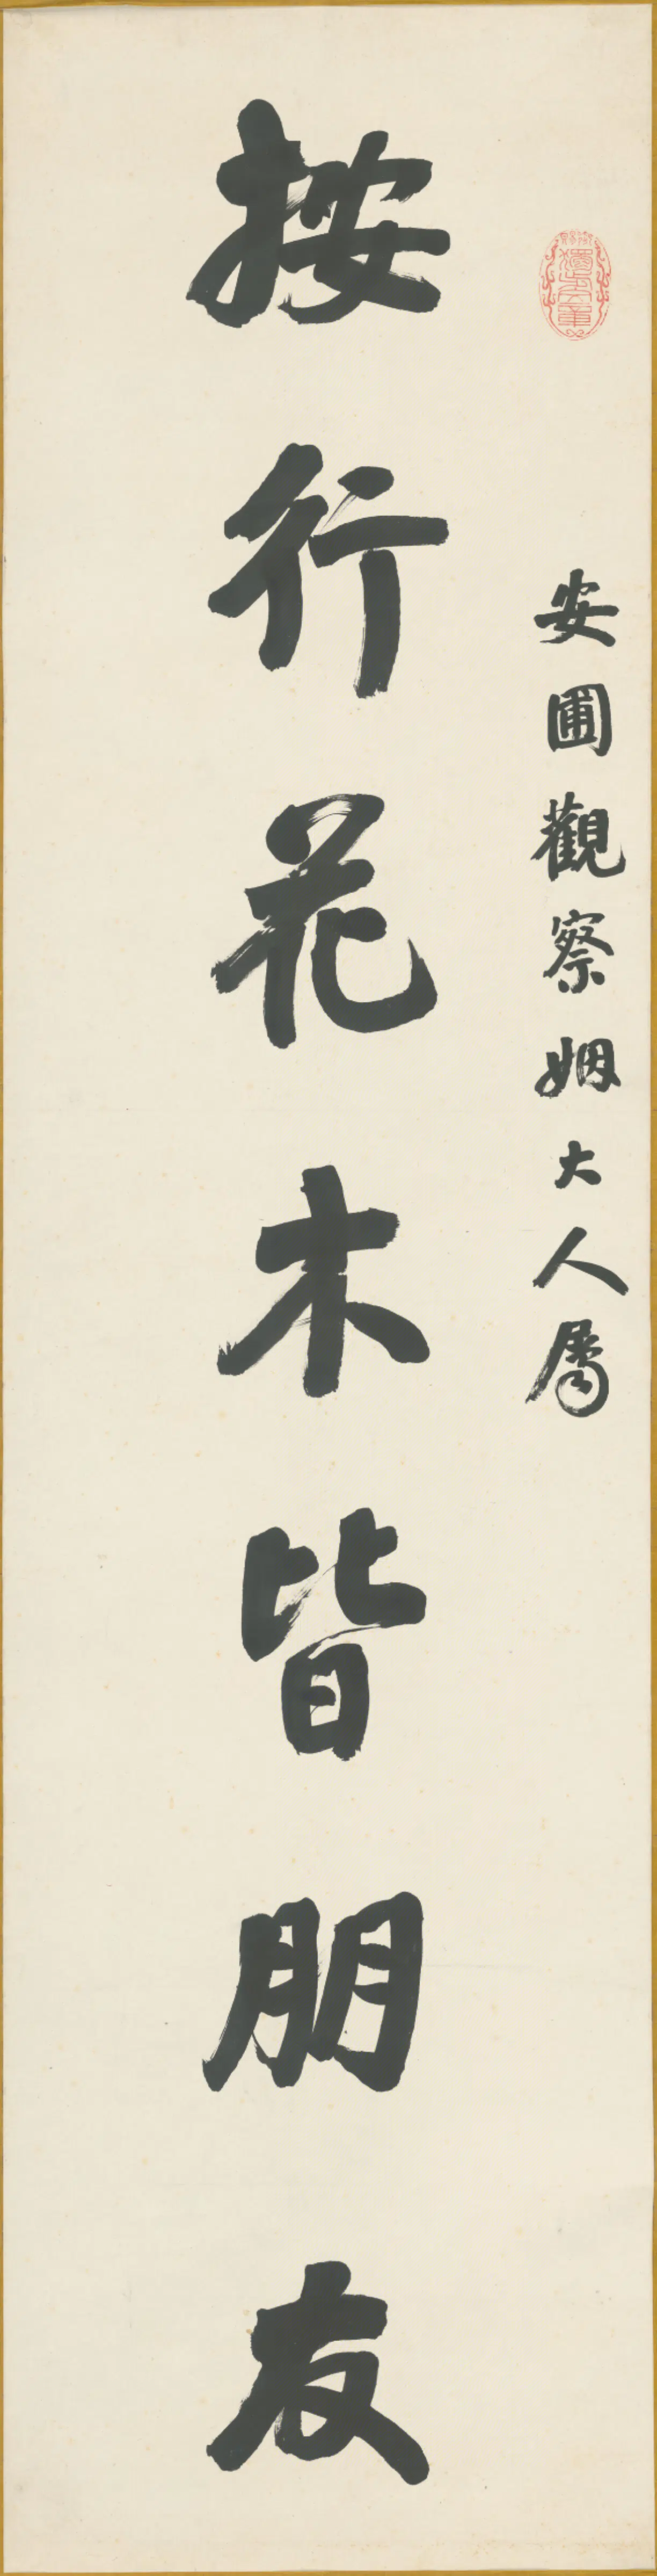 安圃觀察姻大人屬
按行花木皆朋友